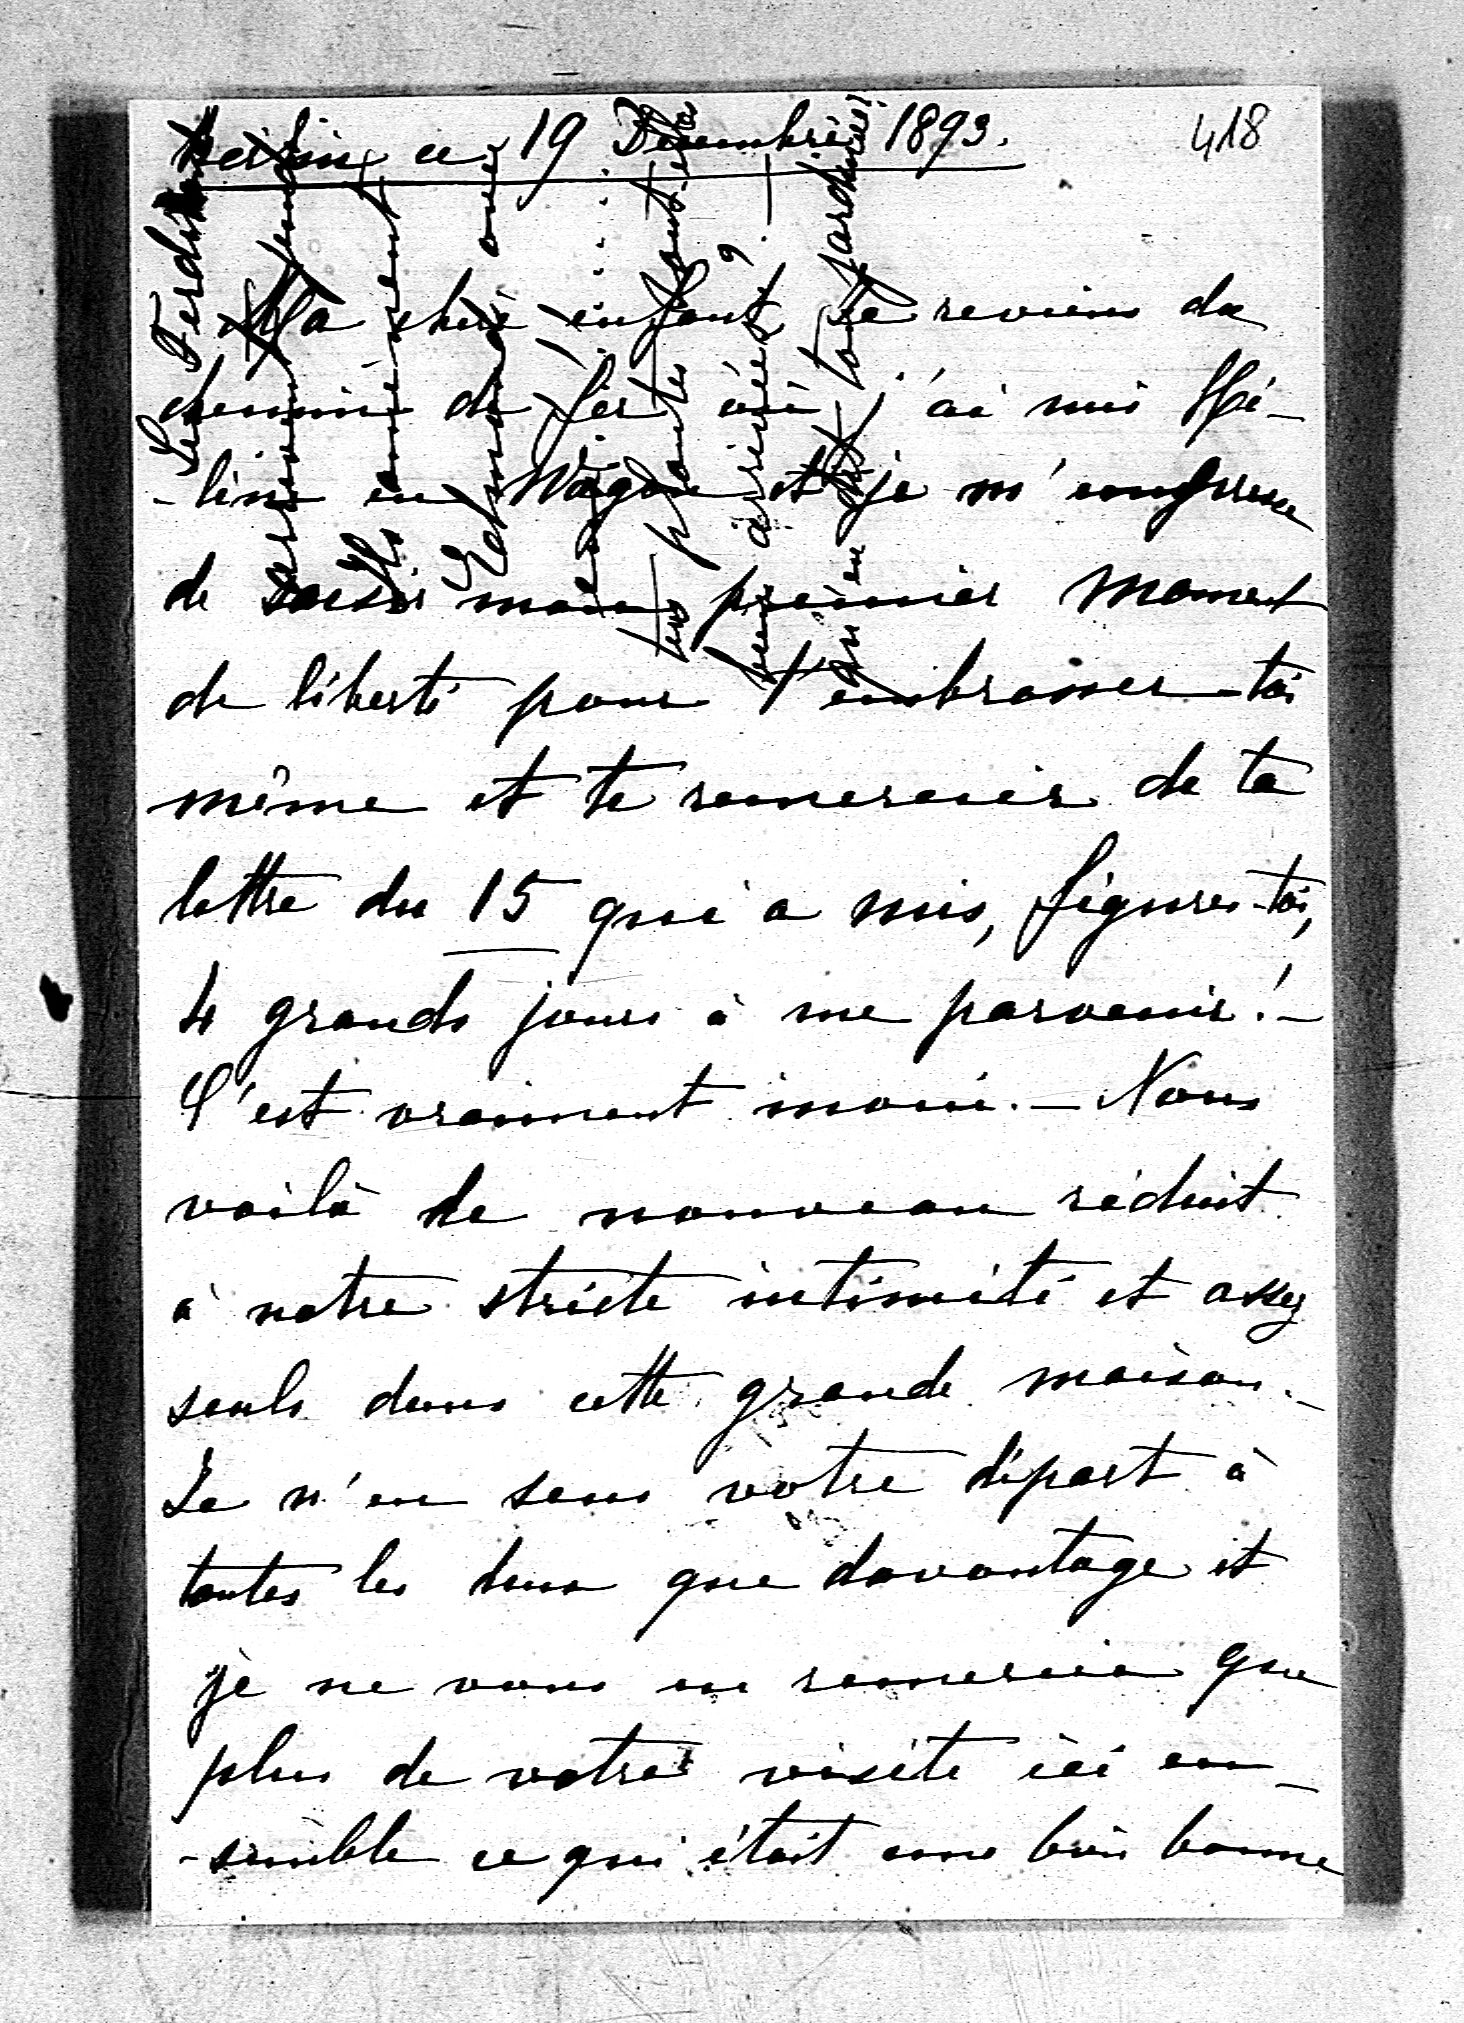 418
Berlin ce 19 Décembre 1893.
Ma chère enfant, Je reviens du
chemin de fer où j'ai mis Hé-
-lène en Wagon et je m'empresse
de saisir mon premier moment
de liberté pour t'embrasser toi
même et te remercier de ta
lettre du 15 qui a mis, figures-toi,
4 grands jours à me parvenir! -
C'est vraiment inoui. - Nous
voilà de nouveau réduit
à notre stricte intimité et assez
seuls dans cette grande maison. -
Je n'en sens votre départ à
toutes les deux que davantage et
je ne vous en remercie que
plus de votre visite ici en-
-semble ce qui était une bien bonne
Les Ferdinand
Edmond
tes plantes sont-elles
bien arrivées?. -
ton jardinier